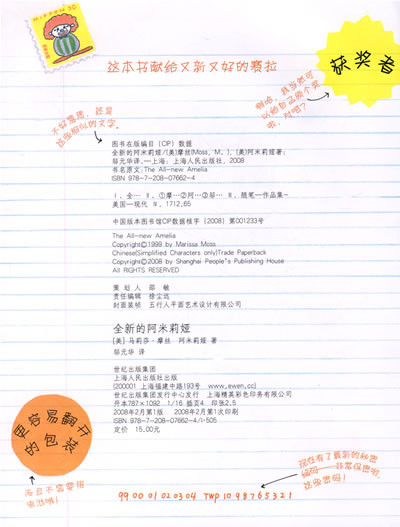 NIPPON 30
这本书献给又新又好的赛拉
获奖者
嘿哈，我当然可
以给自己颁个奖
啦，对吧？
不好意思，还是
这些相似的文字。
图书在版编目（CIP）数据
全新的阿米莉娅/(美)摩丝(Moss, M.), (美)阿米莉娅著;
邬元华译.—上海: 上海人民出版社, 2008
书名原文: The All-new Amelia
ISBN 978-7-208-07662-4
Ⅰ. 全… Ⅱ. ①摩…②阿…③邬… Ⅲ. 随笔—作品集—
美国—现代 Ⅳ. I712.65
中国版本图书馆CIP数据核字（2008）第001233号
The All-new Amelia
Copyright©1999 by Marissa Moss
Chinese(Simplified Characters only)Trade Paperback
Copyright©2008 by Shanghai People"s Publishing House
All RIGHTS RESERVED
策 划 人 邵 敏
责任编辑 徐尘远
封面装帧 五行人平面艺术设计有限公司
全新的阿米莉娅
[美] 马莉莎·摩丝 阿米莉娅 著
邬元华 译
世纪出版集团
上海人民出版社出版
(200001 上海福建中路193号 www.ewen.cc)
世纪出版集团发行中心发行 上海精英彩色印务有限公司
开本787×1092 1/16 插页4 印张2.5
2008年2月第1版 2008年2月第1次印刷
ISBN 978-7-208-07662-4/I·505
定价 15.00元
更容易翻开
的包装
而且不需要用
现在有了最新的秘密
编码——非常保密呢，
这些密码！
99 00 01 02 03 04 TWP 10 9 8 7 6 5 3 2 1